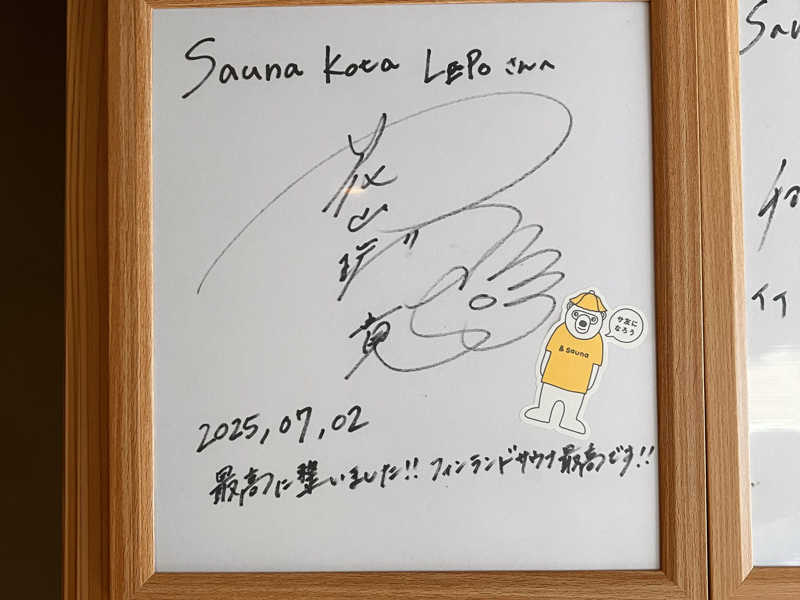 Sauna Kota LEPO さんへ
サ友に
なろう
& Sauna
2025,07,02
最高に整いました!! フィンランドサウナ最高です!!
イイ